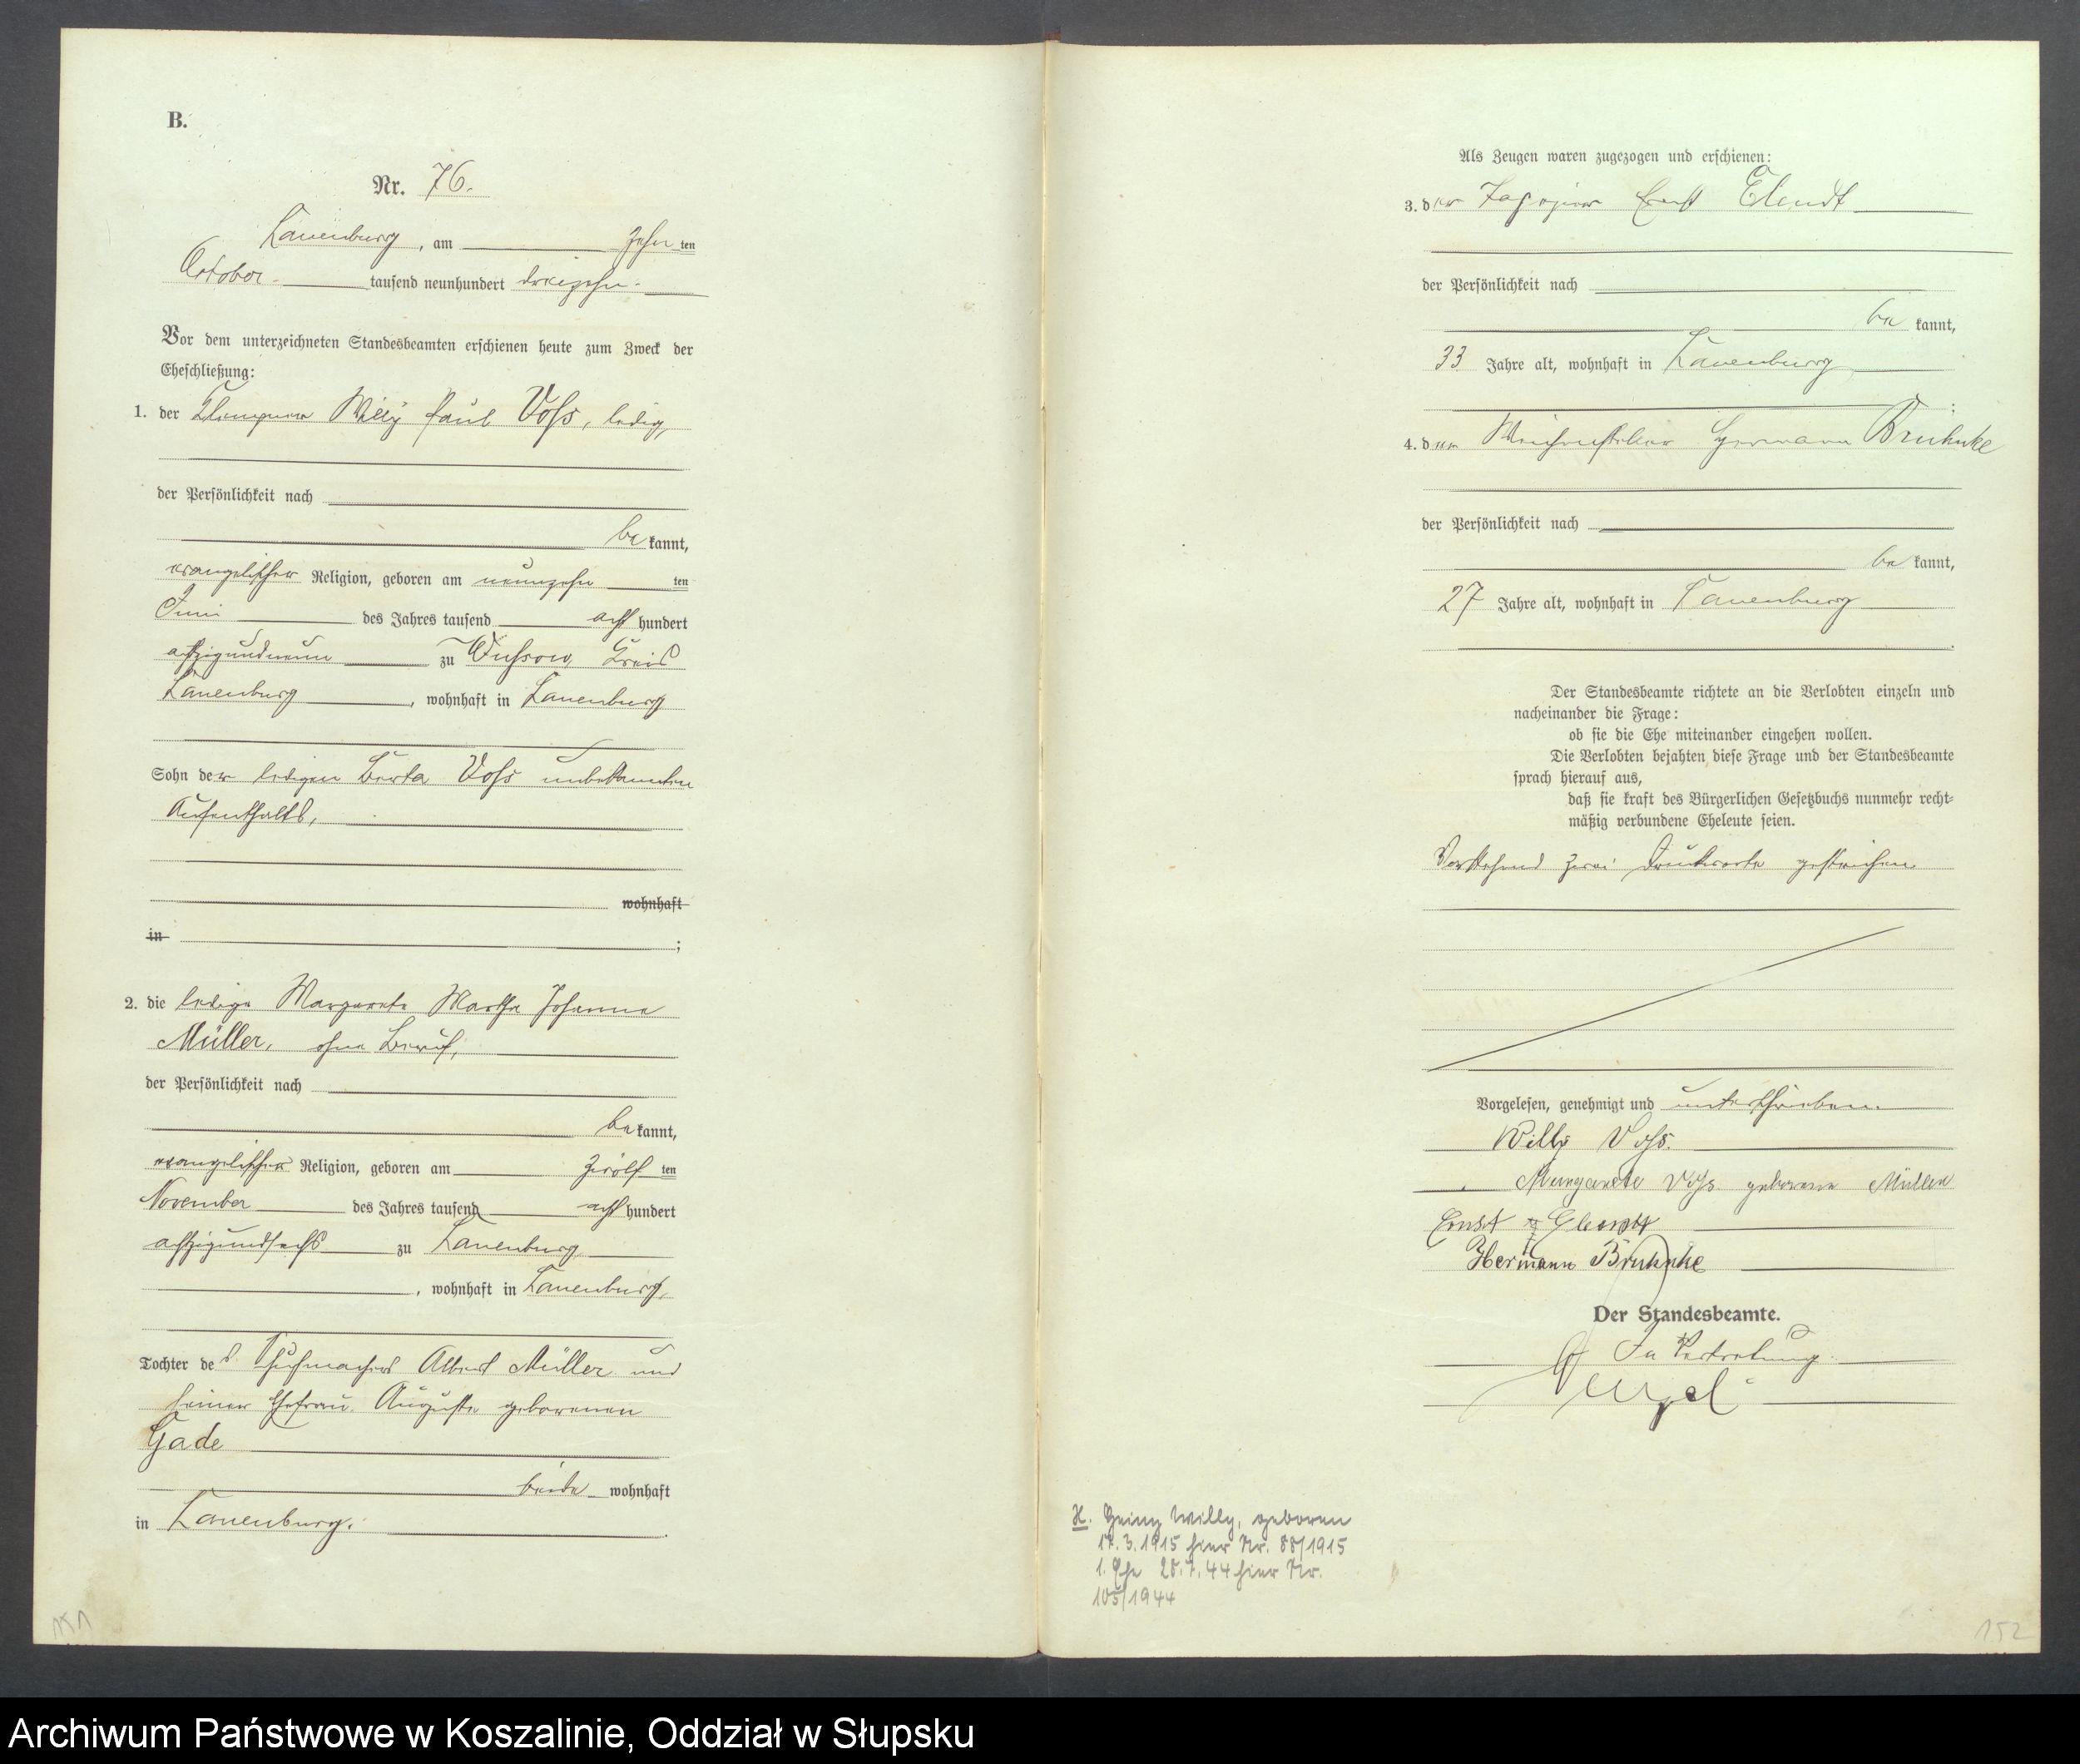 B.
Nr. 76.
Lauenburg, am zehn ten
October tausend neunhundert dreizehn.
Vor dem unterzeichneten Standesbeamten erschienen heute zum Zweck der
Eheschließung:
1. der Klempner Willy Paul Voss, ledig,
der Persönlichkeit nach
be kannt,
evangelischer Religion, geboren am neunzehn ten
Juni des Jahres tausend acht hundert
achtzigundneun zu Wussow, Kreis
Lauenburg, wohnhaft in Lauenburg
Sohn der ledigen Berta Voss unbekannten
Aufenthalts,
wohnhaft
in ;
2. die ledige Margarete Martha Johanna
Müller, ohne Beruf,
der Persönlichkeit nach
be kannt,
evangelischer Religion, geboren am zwölf ten
November des Jahres tausend acht hundert
achtzigundsechs zu Lauenburg
, wohnhaft in Lauenburg,
Tochter des Schuhmachers Albert Müller und
seiner Ehefrau Auguste geborenen
Gade
beide wohnhaft
in Lauenburg.
151
Als Zeugen waren zugezogen und erschienen:
3. der Ernst Elendt
der Persönlichkeit nach
be kannt,
33 Jahre alt, wohnhaft in Lauenburg
;
4. der Weichensteller Hermann Bruhnke
der Persönlichkeit nach
be kannt,
27 Jahre alt, wohnhaft in Lauenburg
.
Der Standesbeamte richtete an die Verlobten einzeln und
nacheinander die Frage:
ob sie die Ehe miteinander eingehen wollen.
Die Verlobten bejahten diese Frage und der Standesbeamte
sprach hierauf aus,
daß sie kraft des Bürgerlichen Gesetzbuchs nunmehr recht-
mäßig verbundene Eheleute seien.
Vorstehend zwei Druckworte gestrichen.
Vorgelesen, genehmigt und unterschrieben.
Willy Voss.
Margarete Voss geborene Müller
Ernst Elendt
Hermann Bruhnke
Der Standesbeamte.
In Vertretung.
H. Heinz Willy, geboren
17.3.1915 hier Nr. 88/1915
1. Ehe 28.7.44 hier Nr.
105/1944
152
Archiwum Państwowe w Koszalinie, Oddział w Słupsku